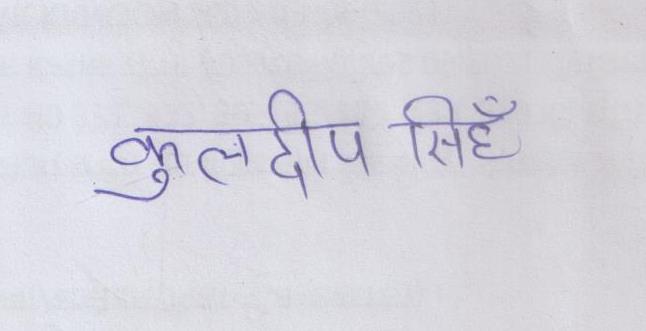 कुलदीप सिहँ